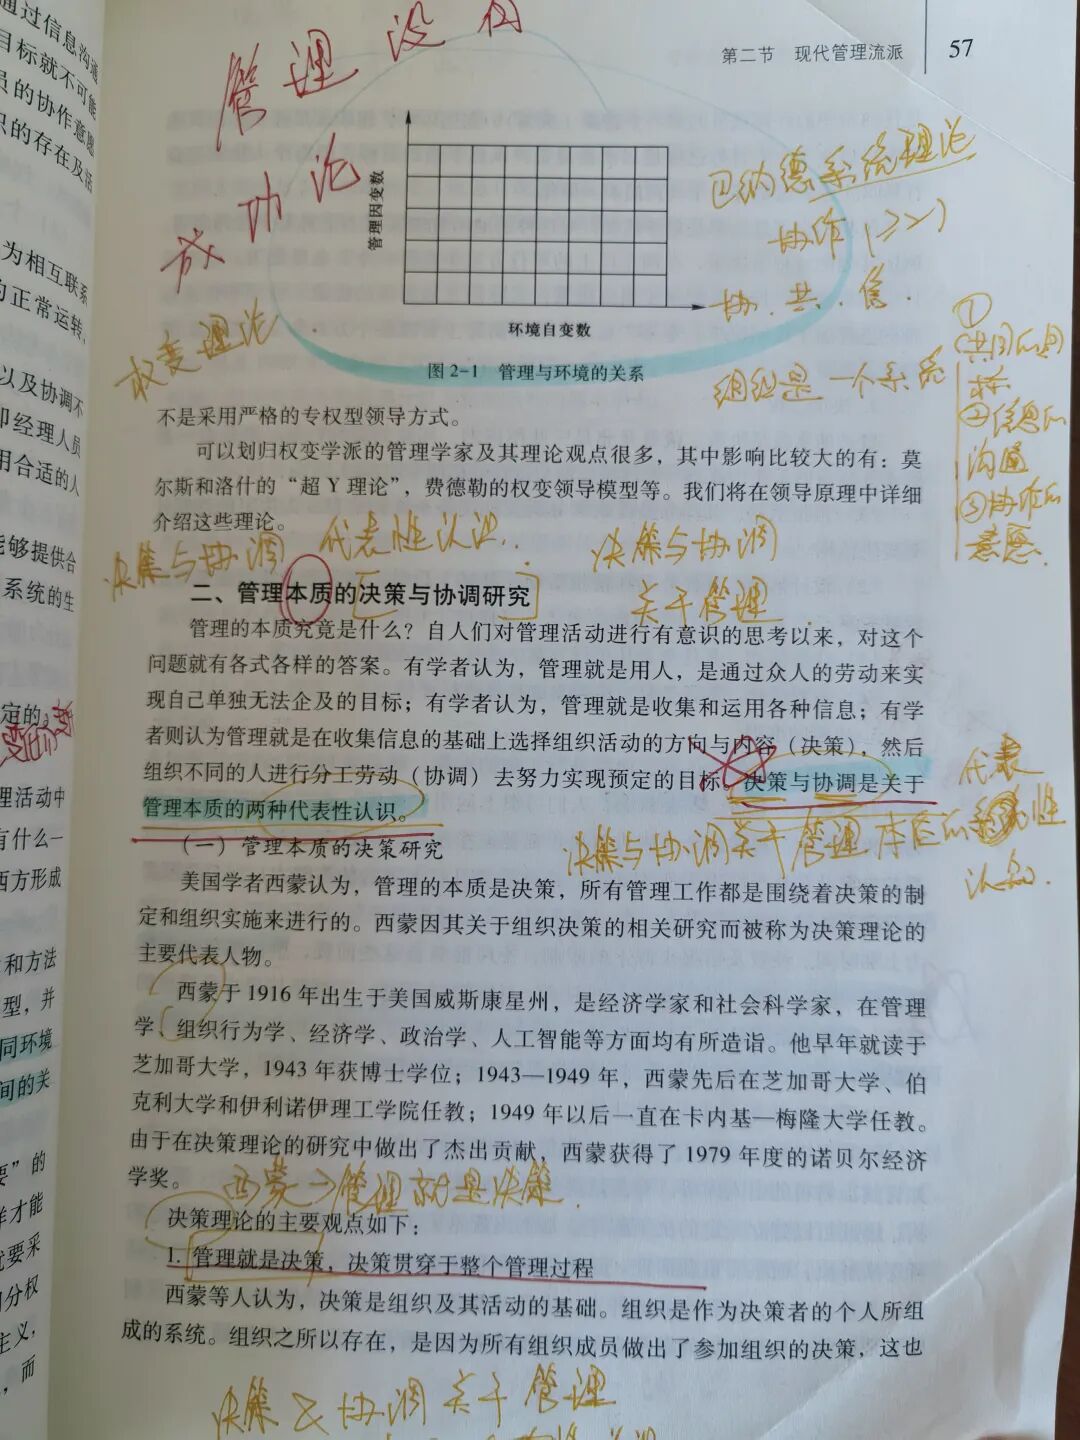 通过信息沟通
目标就不可能
员的协作意愿
织的存在及活
为相互联系
的正常运转,
以及协调不
即经理人员
用合适的人
能够提供合
系统的生
定的,
理活动中
有什么一
西方形成
和方法
型,并
同环境
间的关
要”的
样才能
就要采
分权
主义,
,而
第二节 现代管理流派 57
管理没有
成功论
权变理论
管理因变数
环境自变数
图2-1 管理与环境的关系
巴纳德系统理论
协作(≥2)
协.共.信.
组织是一个系统
①
共同的目
标
②信息的
沟通
③协作的
意愿.
不是采用严格的专权型领导方式。
可以划归权变学派的管理学家及其理论观点很多,其中影响比较大的有:莫
尔斯和洛什的“超Y理论”,费德勒的权变领导模型等。我们将在领导原理中详细
介绍这些理论。
决策与协调 代表性认识.
决策与协调
关于管理.
二、管理本质的决策与协调研究
管理的本质究竟是什么?自人们对管理活动进行有意识的思考以来,对这个
问题就有各式各样的答案。有学者认为,管理就是用人,是通过众人的劳动来实
现自己单独无法企及的目标;有学者认为,管理就是收集和运用各种信息;有学
者则认为管理就是在收集信息的基础上选择组织活动的方向与内容(决策),然后
组织不同的人进行分工劳动(协调)去努力实现预定的目标。决策与协调是关于
管理本质的两种代表性认识。
决策与协调关于管理本质的
代表
性
认识.
(一)管理本质的决策研究
美国学者西蒙认为,管理的本质是决策,所有管理工作都是围绕着决策的制
定和组织实施来进行的。西蒙因其关于组织决策的相关研究而被称为决策理论的
主要代表人物。
西蒙于1916年出生于美国威斯康星州,是经济学家和社会科学家,在管理
学、组织行为学、经济学、政治学、人工智能等方面均有所造诣。他早年就读于
芝加哥大学,1943年获博士学位;1943—1949年,西蒙先后在芝加哥大学、伯
克利大学和伊利诺伊理工学院任教;1949年以后一直在卡内基—梅隆大学任教。
由于在决策理论的研究中做出了杰出贡献,西蒙获得了1979年度的诺贝尔经济
学奖。
西蒙→管理就是决策.
决策理论的主要观点如下:
1. 管理就是决策,决策贯穿于整个管理过程
西蒙等人认为,决策是组织及其活动的基础。组织是作为决策者的个人所组
成的系统。组织之所以存在,是因为所有组织成员做出了参加组织的决策,这也
决策与协调关于管理